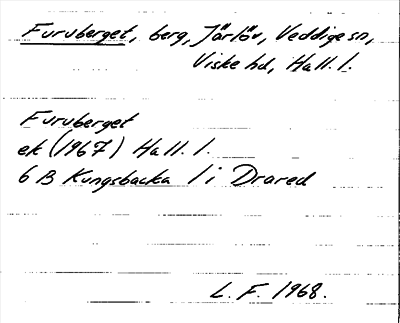 Furuberget, berg, Järlöv, Veddige sn,
Viske hd, Hall. l.
Furuberget
ek (1967) Hall. l.
6 B Kungsbacka 1 i Drared
L. F. 1968.